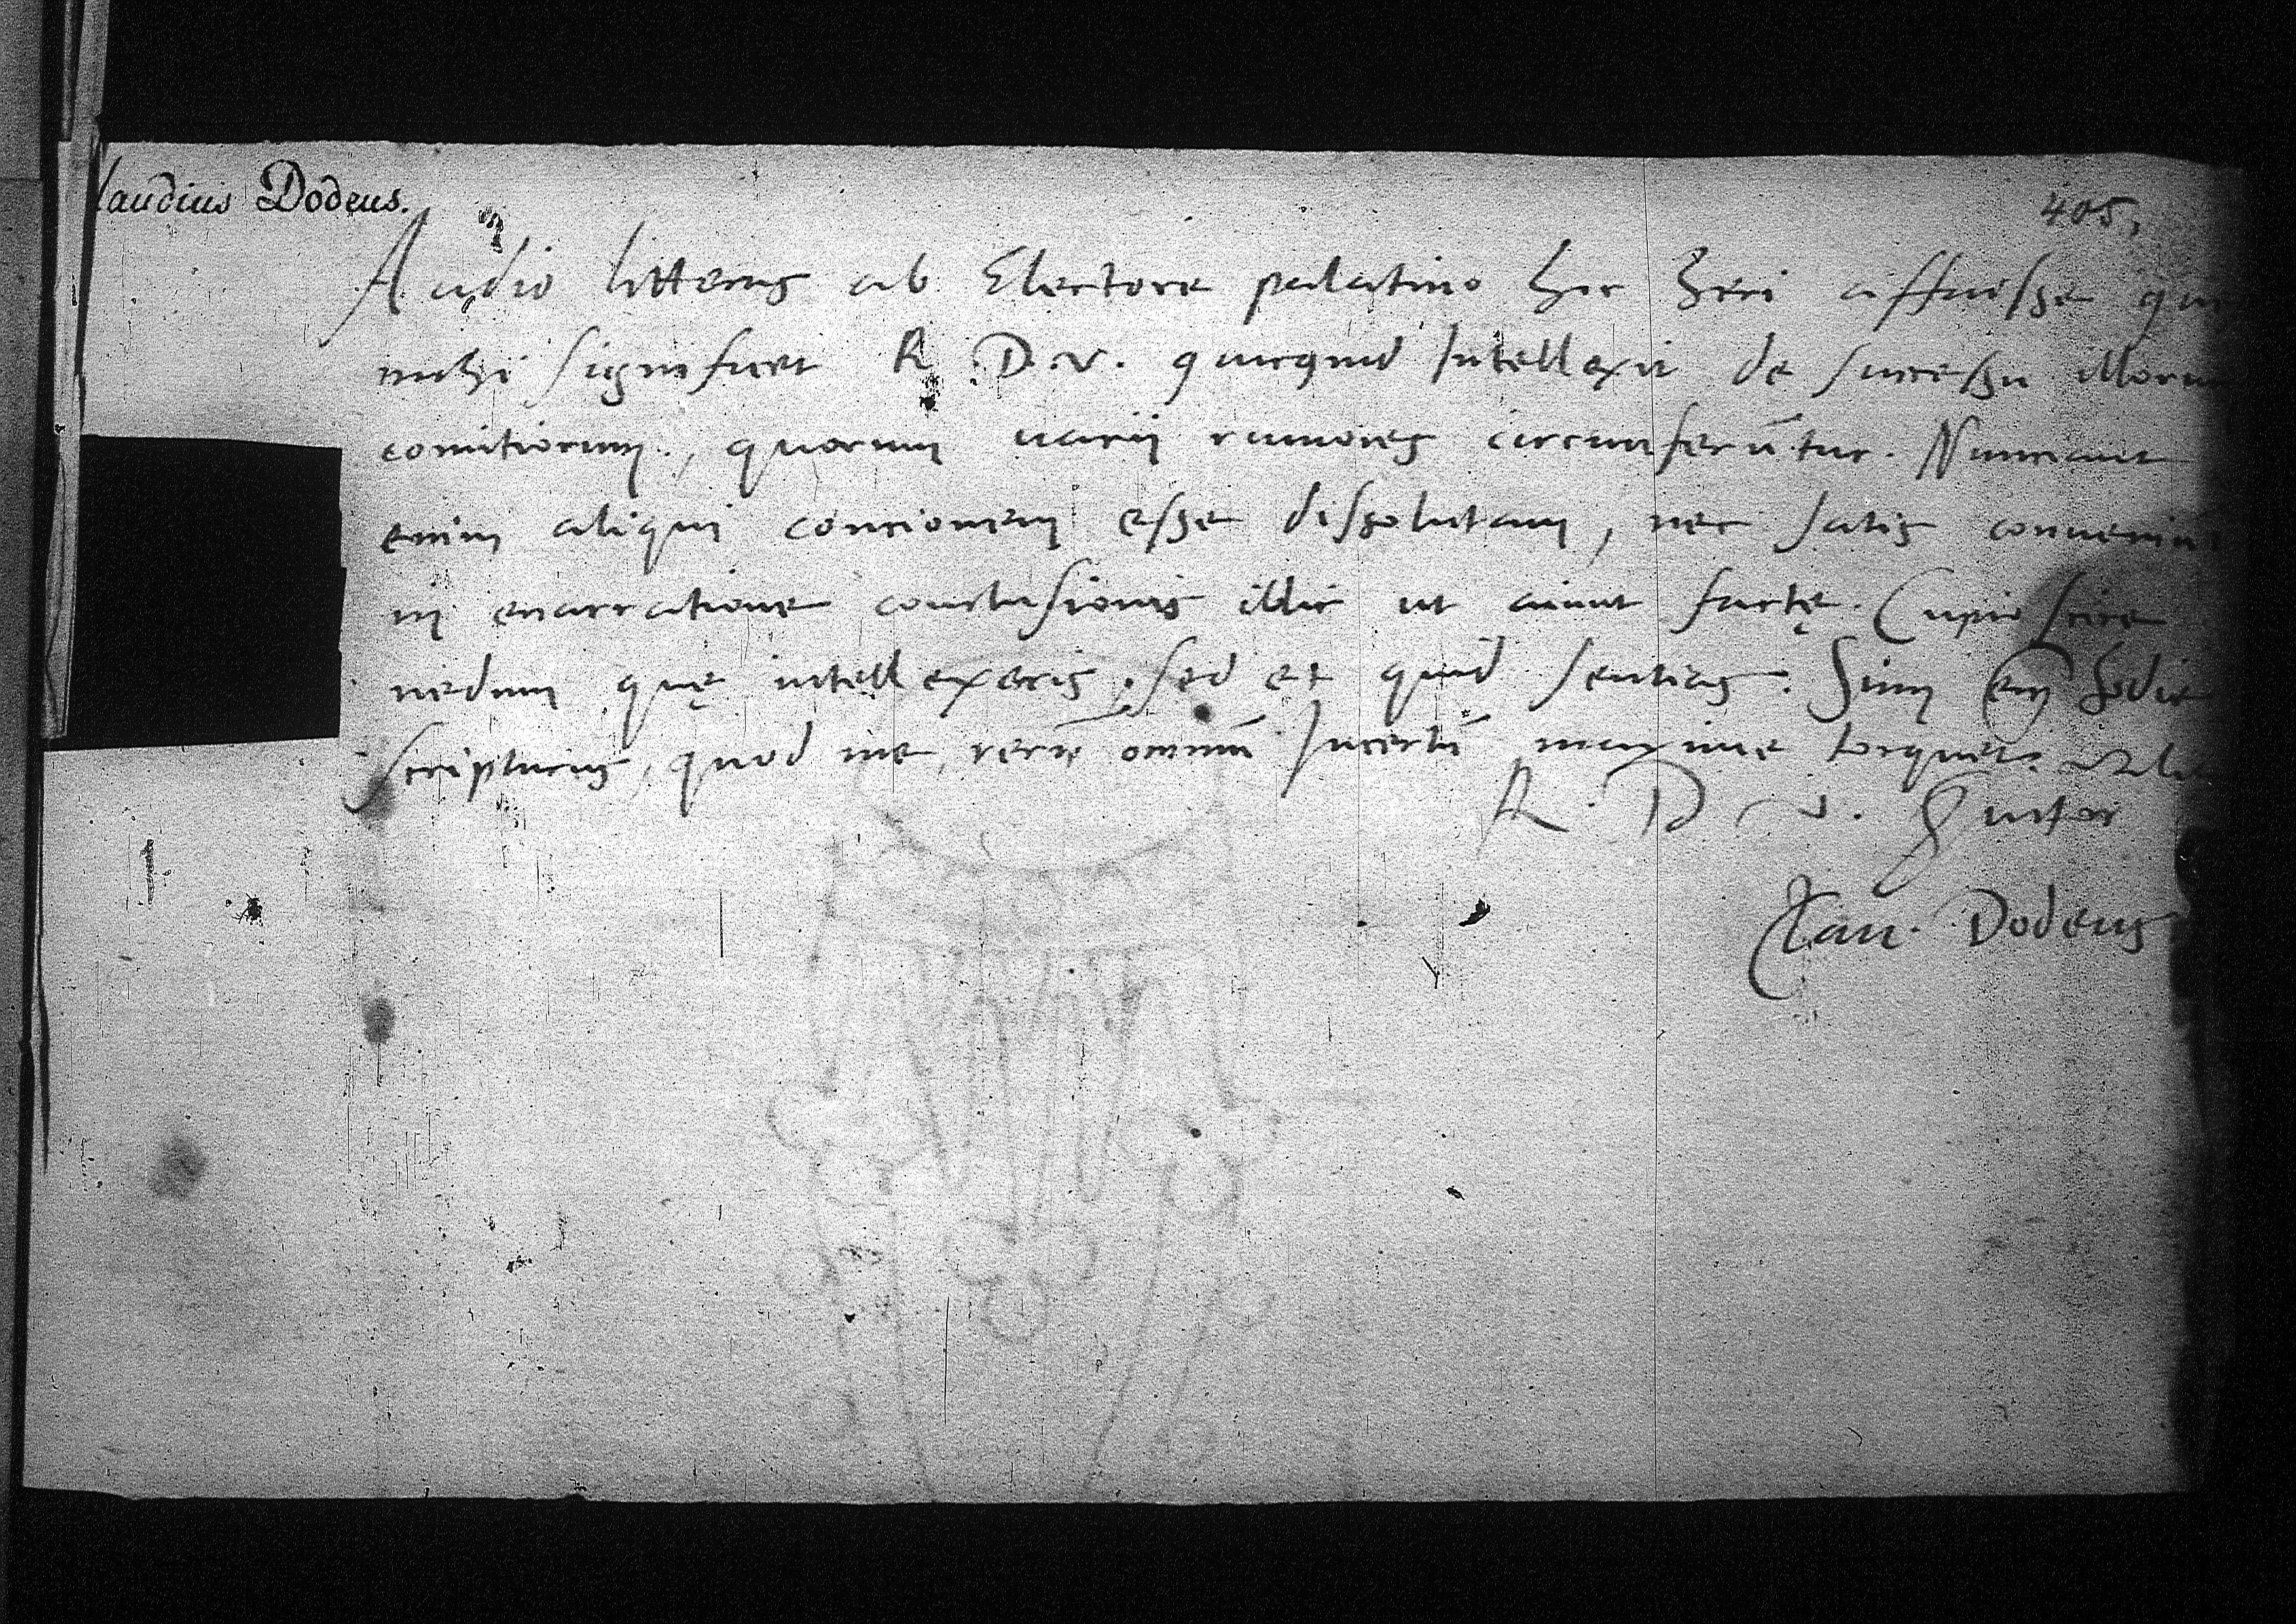 laudius Dodeus.
405,
Audio litteras ab Electore palatino hic heri affuisse
mihi significet R. D. v. quicquid Intellexit de successu illoru
comitiorum, quorum uarij rumores circumferūtur. Nunciant
enim aliqui concionem esse dissolutam, nec satis conueniu
in enarratione conclusionis illic ut aiunt factę. Cupio scire
nedum quę intellexeris, sed et quid sentias. Sum em̄ hodie
scripturus, quod me, rerū omniū Incertū maxime torquet.
R. D v.
Clau. Dodeus